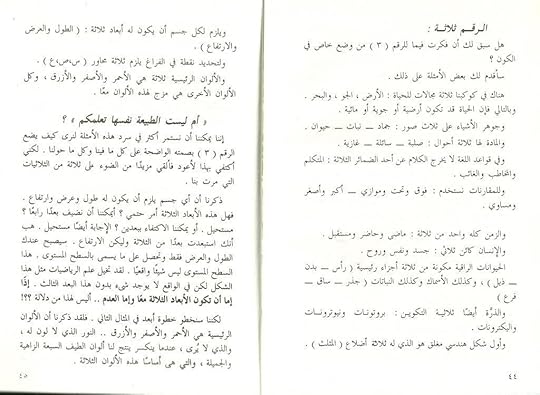 الرقم ثلاثة :
هل سبق لك أن فكرت فيما للرقم ( ٣ ) من وضع خاص في
الكون ؟
سأقدم لك بعض الأمثلة على ذلك .
هناك في كوكبنا ثلاثة مجالات للحياة : الأرض ، الجو ، والبحر .
وبالتالي فإن الحياة قد تكون أرضية أو جوية أو مائية .
وجوهر الأشياء على ثلاث صور : جماد ــ نبات ــ حيوان .
والمادة لها ثلاثة أحوال : صلبة ــ سائلة ــ غازية .
وفي قواعد اللغة لا يخرج الكلام عن أحد الضمائر الثلاثة : المتكلم
والمخاطب والغائب .
وللمقارنات نستخدم : فوق وتحت وموازي ــ أكبر وأصغر
ومساوي .
والزمن كله واحد من ثلاثة : ماضي وحاضر ومستقبل .
والإنسان كائن ثلاثي : جسد ونفس وروح .
الحيوانات الراقية مكونة من ثلاثة أجزاء رئيسية ( رأس ــ بدن
ــ ذيل ) ، وكذلك الأسماك وكذلك النباتات ( جذر ــ ساق ــ
فرع )
والذرَّة أيضًا ثلاثية التكوين : بروتونات ونيوترونات
واليكترونات .
وأول شكل هندسي مغلق هو الذي له ثلاثة أضلاع ( المثلث ) .
٤٤
ويلزم لكل جسم أن يكون له أبعاد ثلاثة : ( الطول والعرض
والارتفاع ) .
ولتحديد نقطة في الفراغ يلزم ثلاثة محاور ( س،ص،ع ) .
والألوان الرئيسية ثلاثة هي الأحمر والأصفر والأزرق ، وكل
الألوان الأخرى هي مزج لهذه الألوان معًا .
« أم ليست الطبيعة نفسها تعلمكم » ؟
إننا يمكننا أن نستمر أكثر في سرد هذه الأمثلة لنرى كيف يضع
الرقم ( ٣ ) بصمته الواضحة على كل ما فينا وكل ما حولنا . لكني
أكتفي بهذا لأعود فألقي مزيدًا من الضوء على ثلاثة من الثلاثيات
التي مرت بنا .
ذكرنا أن أي جسم يلزم أن يكون له طول وعرض وارتفاع .
فهل هذه الأبعاد الثلاثة أمر حتمي ؟ أيمكننا أن نضيف بعدًا رابعًا ؟
مستحيل . أو يمكننا الاكتفاء ببعدين ؟ الإجابة أيضًا مستحيل . هب
أنك استبعدت بعدًا من الثلاثة وليكن الارتفاع . سيصبح عندك
الطول والعرض فقط وتحصل على ما يسمى بالسطح المستوى . هذا
السطح المستوى ليس شيئًا واقعيًا . لقد تخيل علم الرياضيات مثل هذا
الشكل لكن في الواقع لا يوجد شيء بدون هذا البعد الثالث . إذًا
إما أن تكون الأبعاد الثلاثة معًا وإما العدم .. أليس لهذا من دلالة ؟؟!
لكننا سنخطو خطوة أبعد في المثال التالي . فلقد ذكرنا أن الألوان
الرئيسية هي الأحمر والأصفر والأزرق .. النور الذي لا لون له ،
والذي لا يُرى ، عندما ينكسر ينتج لنا ألوان الطيف السبعة الزاهية
والجميلة ، والتي هي أساسًا هذه الألوان الثلاثة .
٤٥